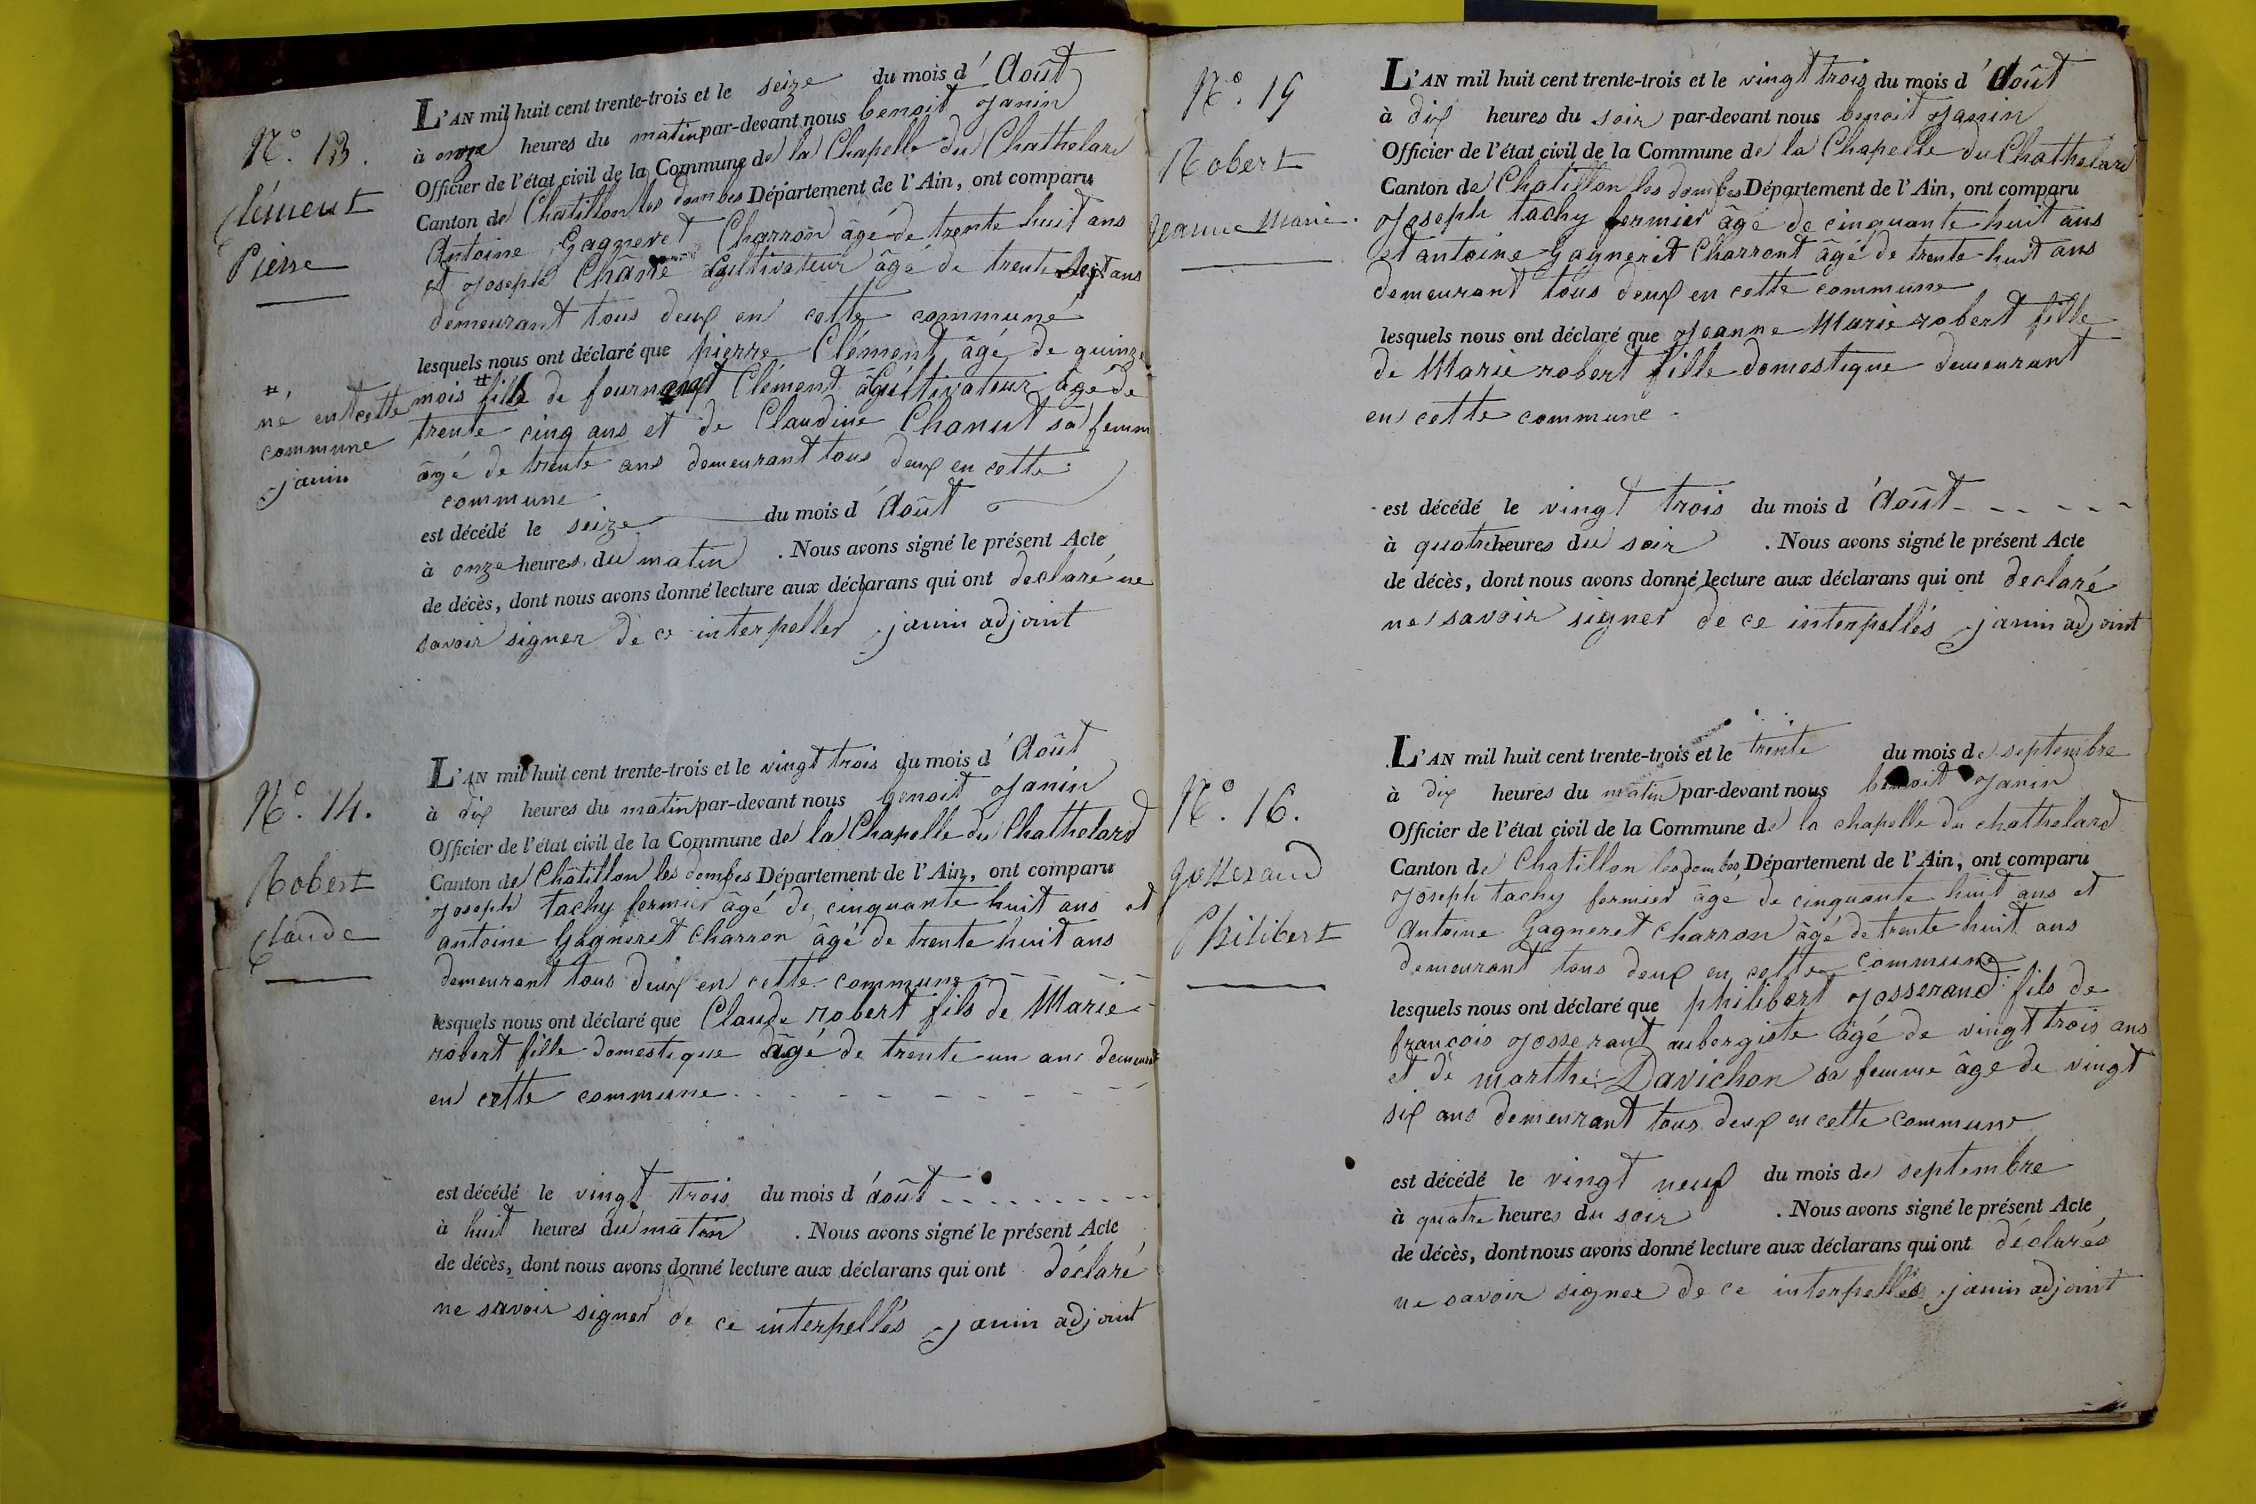 N.º 13.
Clément
Pierre
L'AN mil huit cent trente-trois et le seize du mois d'Août
à onze heures du matin par-devant nous benoit Janin
Officier de l'état civil de la Commune de la Chapelle du Chathelard
Canton de Chatillon les dombes Département de l'Ain, ont comparu
Antoine Gagneret Charron âgé de trente huit ans
et Joseph cultivateur âgé de trente sept ans
demeurant tous deux en cette commune
lesquels nous ont déclaré que pierre Clément âgé de quinze
mois # fils de Clément cultivateur âgé de
trente cinq ans et de Claudine Chanut sa femme
âgé de trente ans demeurant tous deux en cette
commune
#
né en cette
commune
janin
est décédé le seize du mois d'Août
à onze heures du matin. Nous avons signé le présent Acte
de décès, dont nous avons donné lecture aux déclarans qui ont declaré ne
savoir signer de ce interpeller janin adjoint
N.º 14.
Robert
Claude
L'AN mil huit cent trente-trois et le vingt trois du mois d'Août
à dix heures du matin par-devant nous benoit Janin
Officier de l'état civil de la Commune de la Chapelle du Chathelard
Canton de Châtillon les dombes Département de l'Ain, ont comparu
Joseph tachy fermier âgé de cinquante huit ans et
antoine Gagneret charron âgé de trente huit ans
demeurant tous deux en cette commune
lesquels nous ont déclaré que Claude robert fils de Marie
robert fille domestique âgé de trente un ans demeurant
en cette commune
est décédé le vingt trois du mois d'août
à huit heures du matin. Nous avons signé le présent Acte
de décès, dont nous avons donné lecture aux déclarans qui ont déclaré
ne savoir signer de ce interpellés janin adjoint
N.º 15
Robert
Jeanne Marie.
L'AN mil huit cent trente-trois et le vingt trois du mois d'Août
à dix heures du soir par-devant nous benoit Janin
Officier de l'état civil de la Commune de la Chapelle du Chathelard
Canton de Chatillon les dombes Département de l'Ain, ont comparu
Joseph tachy fermier âgé de cinquante huit ans
et antoine Gagneret Charront âgé de trente huit ans
demeurant tous deux en cette commune
lesquels nous ont déclaré que Jeanne Marie robert fille
de Marie robert fille domestique demeurant
en cette commune
est décédé le vingt trois du mois d'Août
à quatre heures du soir. Nous avons signé le présent Acte
de décès, dont nous avons donné lecture aux déclarans qui ont declaré
ne savoir signer de ce interpellés janin adjoint
N.º 16.
Josserand
Philibert
L'AN mil huit cent trente-trois et le trente du mois de septembre
à dix heures du matin par-devant nous benoit Janin
Officier de l'état civil de la Commune de la chapelle du chathelard
Canton de Chatillon les dombes Département de l'Ain, ont comparu
Joseph tachy fermier âgé de cinquante huit ans et
Antoine Gagneret charron âgé de trente huit ans
demeurant tous deux en cette commune
lesquels nous ont déclaré que philibert Josserand fils de
françois Josserant aubergiste âgé de vingt trois ans
et de marthe Davichon sa femme âgé de vingt
six ans demeurant tous deux en cette commune
est décédé le vingt neuf du mois de septembre
à quatre heures du soir. Nous avons signé le présent Acte
de décès, dont nous avons donné lecture aux déclarans qui ont déclarés
ne savoir signer de ce interpellés janin adjoint